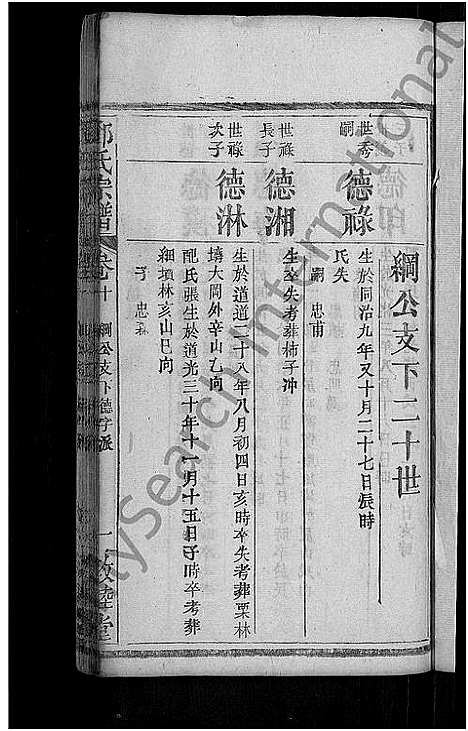 綱公支下二十世
世秀
嗣
德祿
生於同治九年又十月二十七日辰時
氏失
嗣 忠甫
世祿
長子
德湘
生卒失考葬柿子冲
世祿
次子
德淋
生於道道二十八年八月初四日亥時卒失考葬栗林
塆大間外辛山乙向
配氏張生於道光三十年十一月十五日子時卒考葬
細墳林亥山巳向
子 忠
氏宗譜
卷十
綱公支下德字派
一
敦睦堂
MySearch International